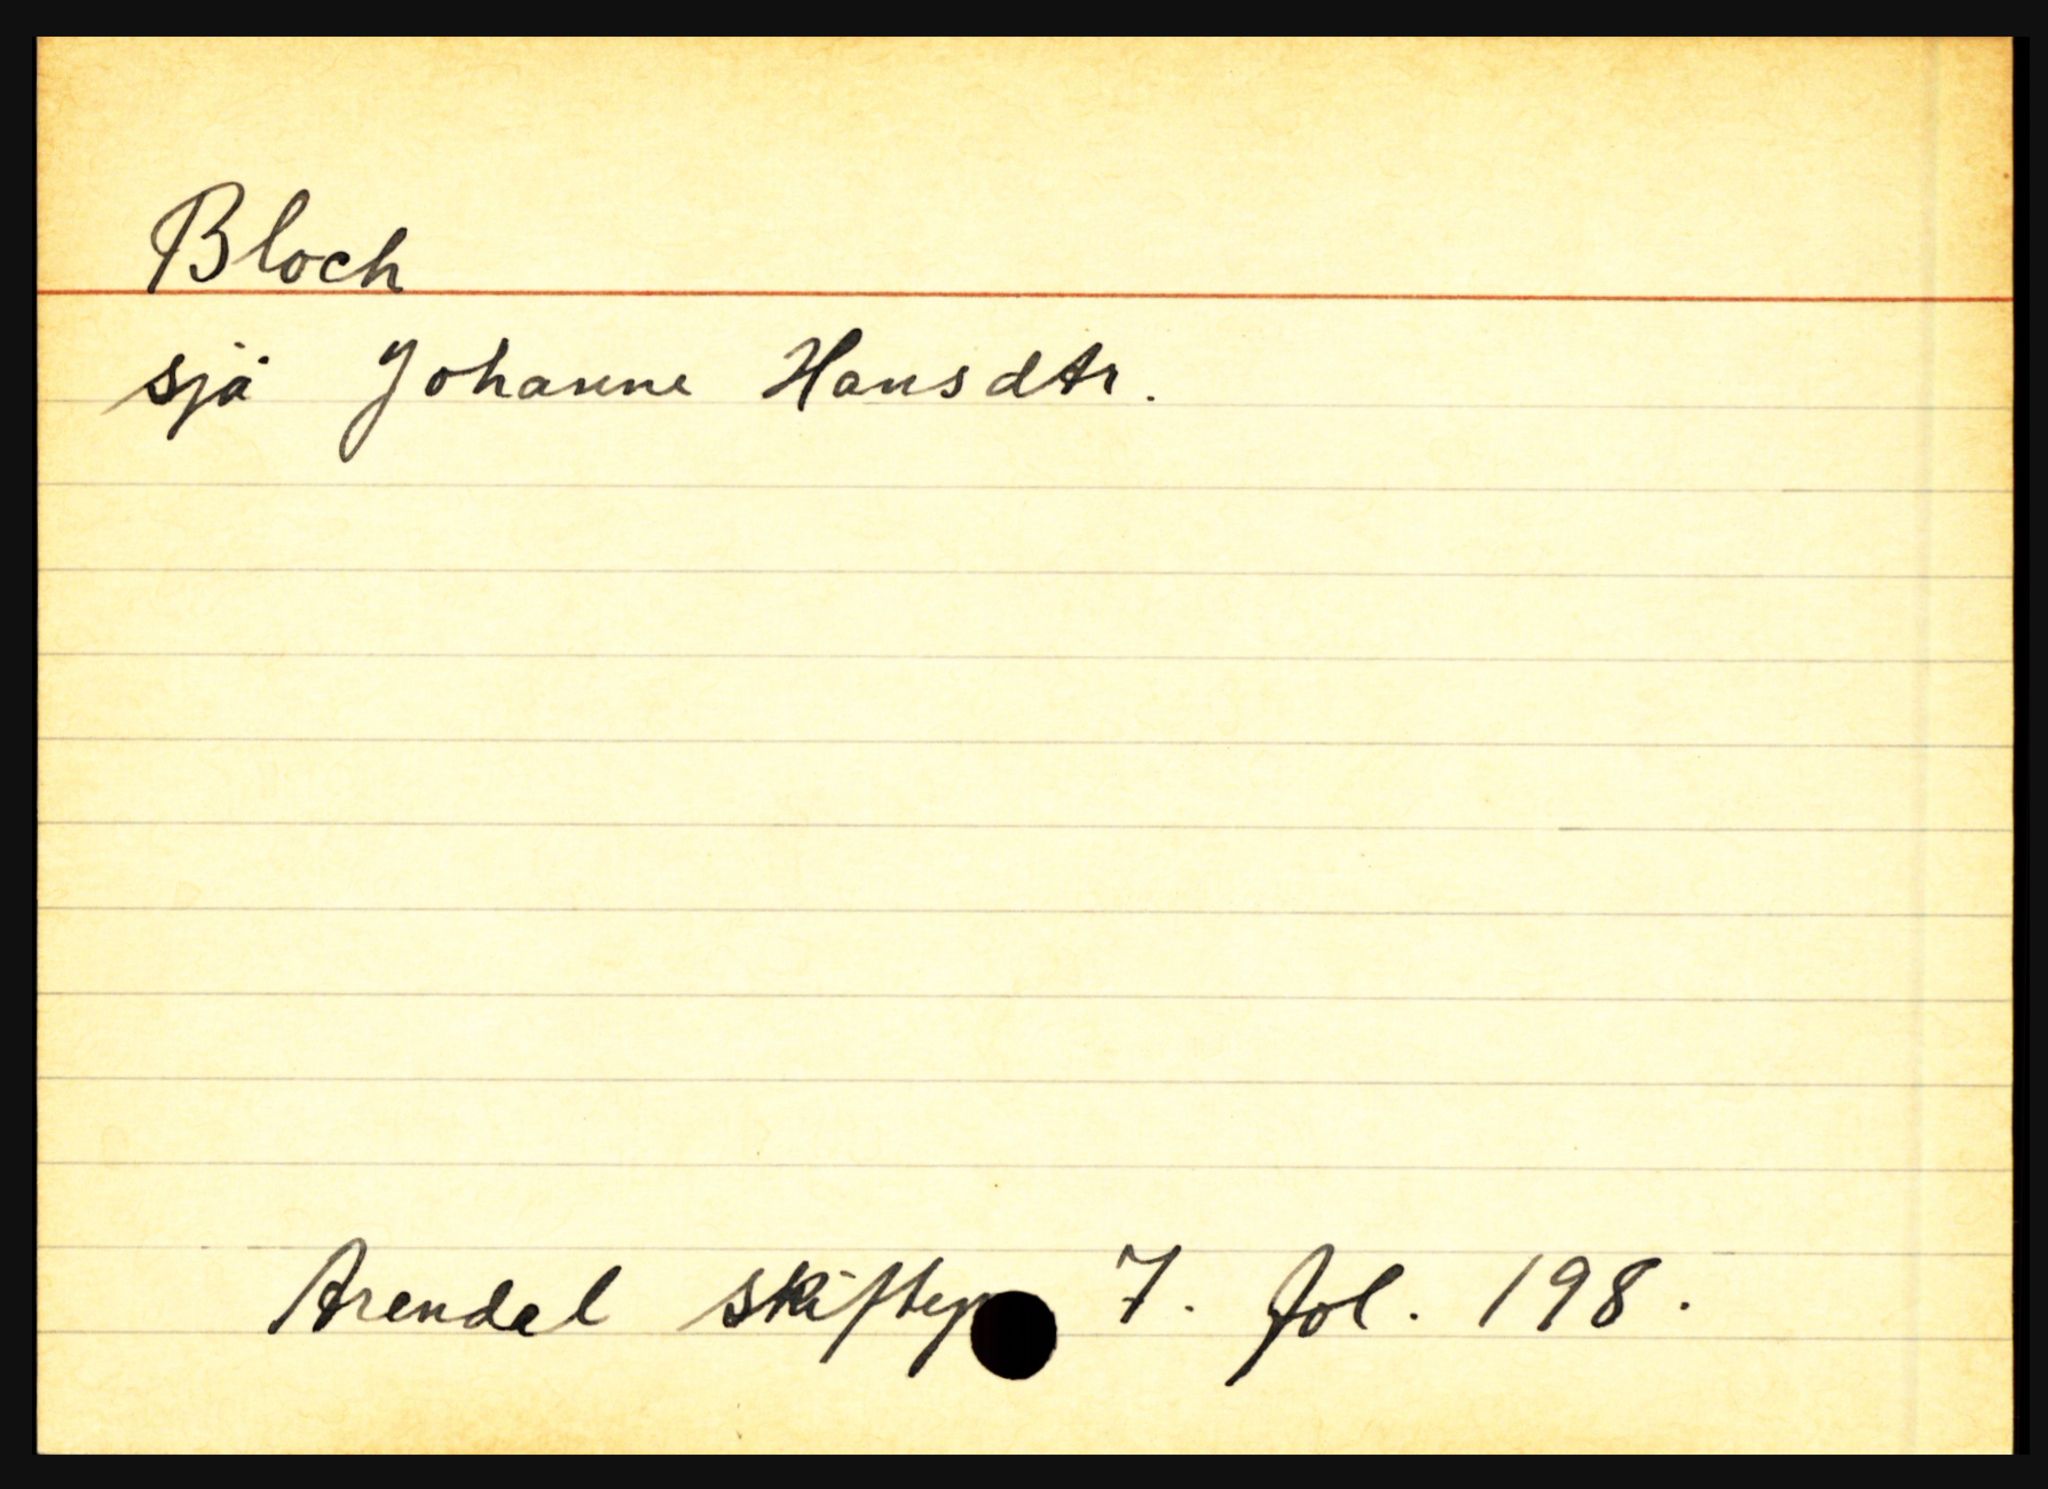 Bloch
sjå Johanne Hansdtr.
Arendal skiftep 7. fol. 198.